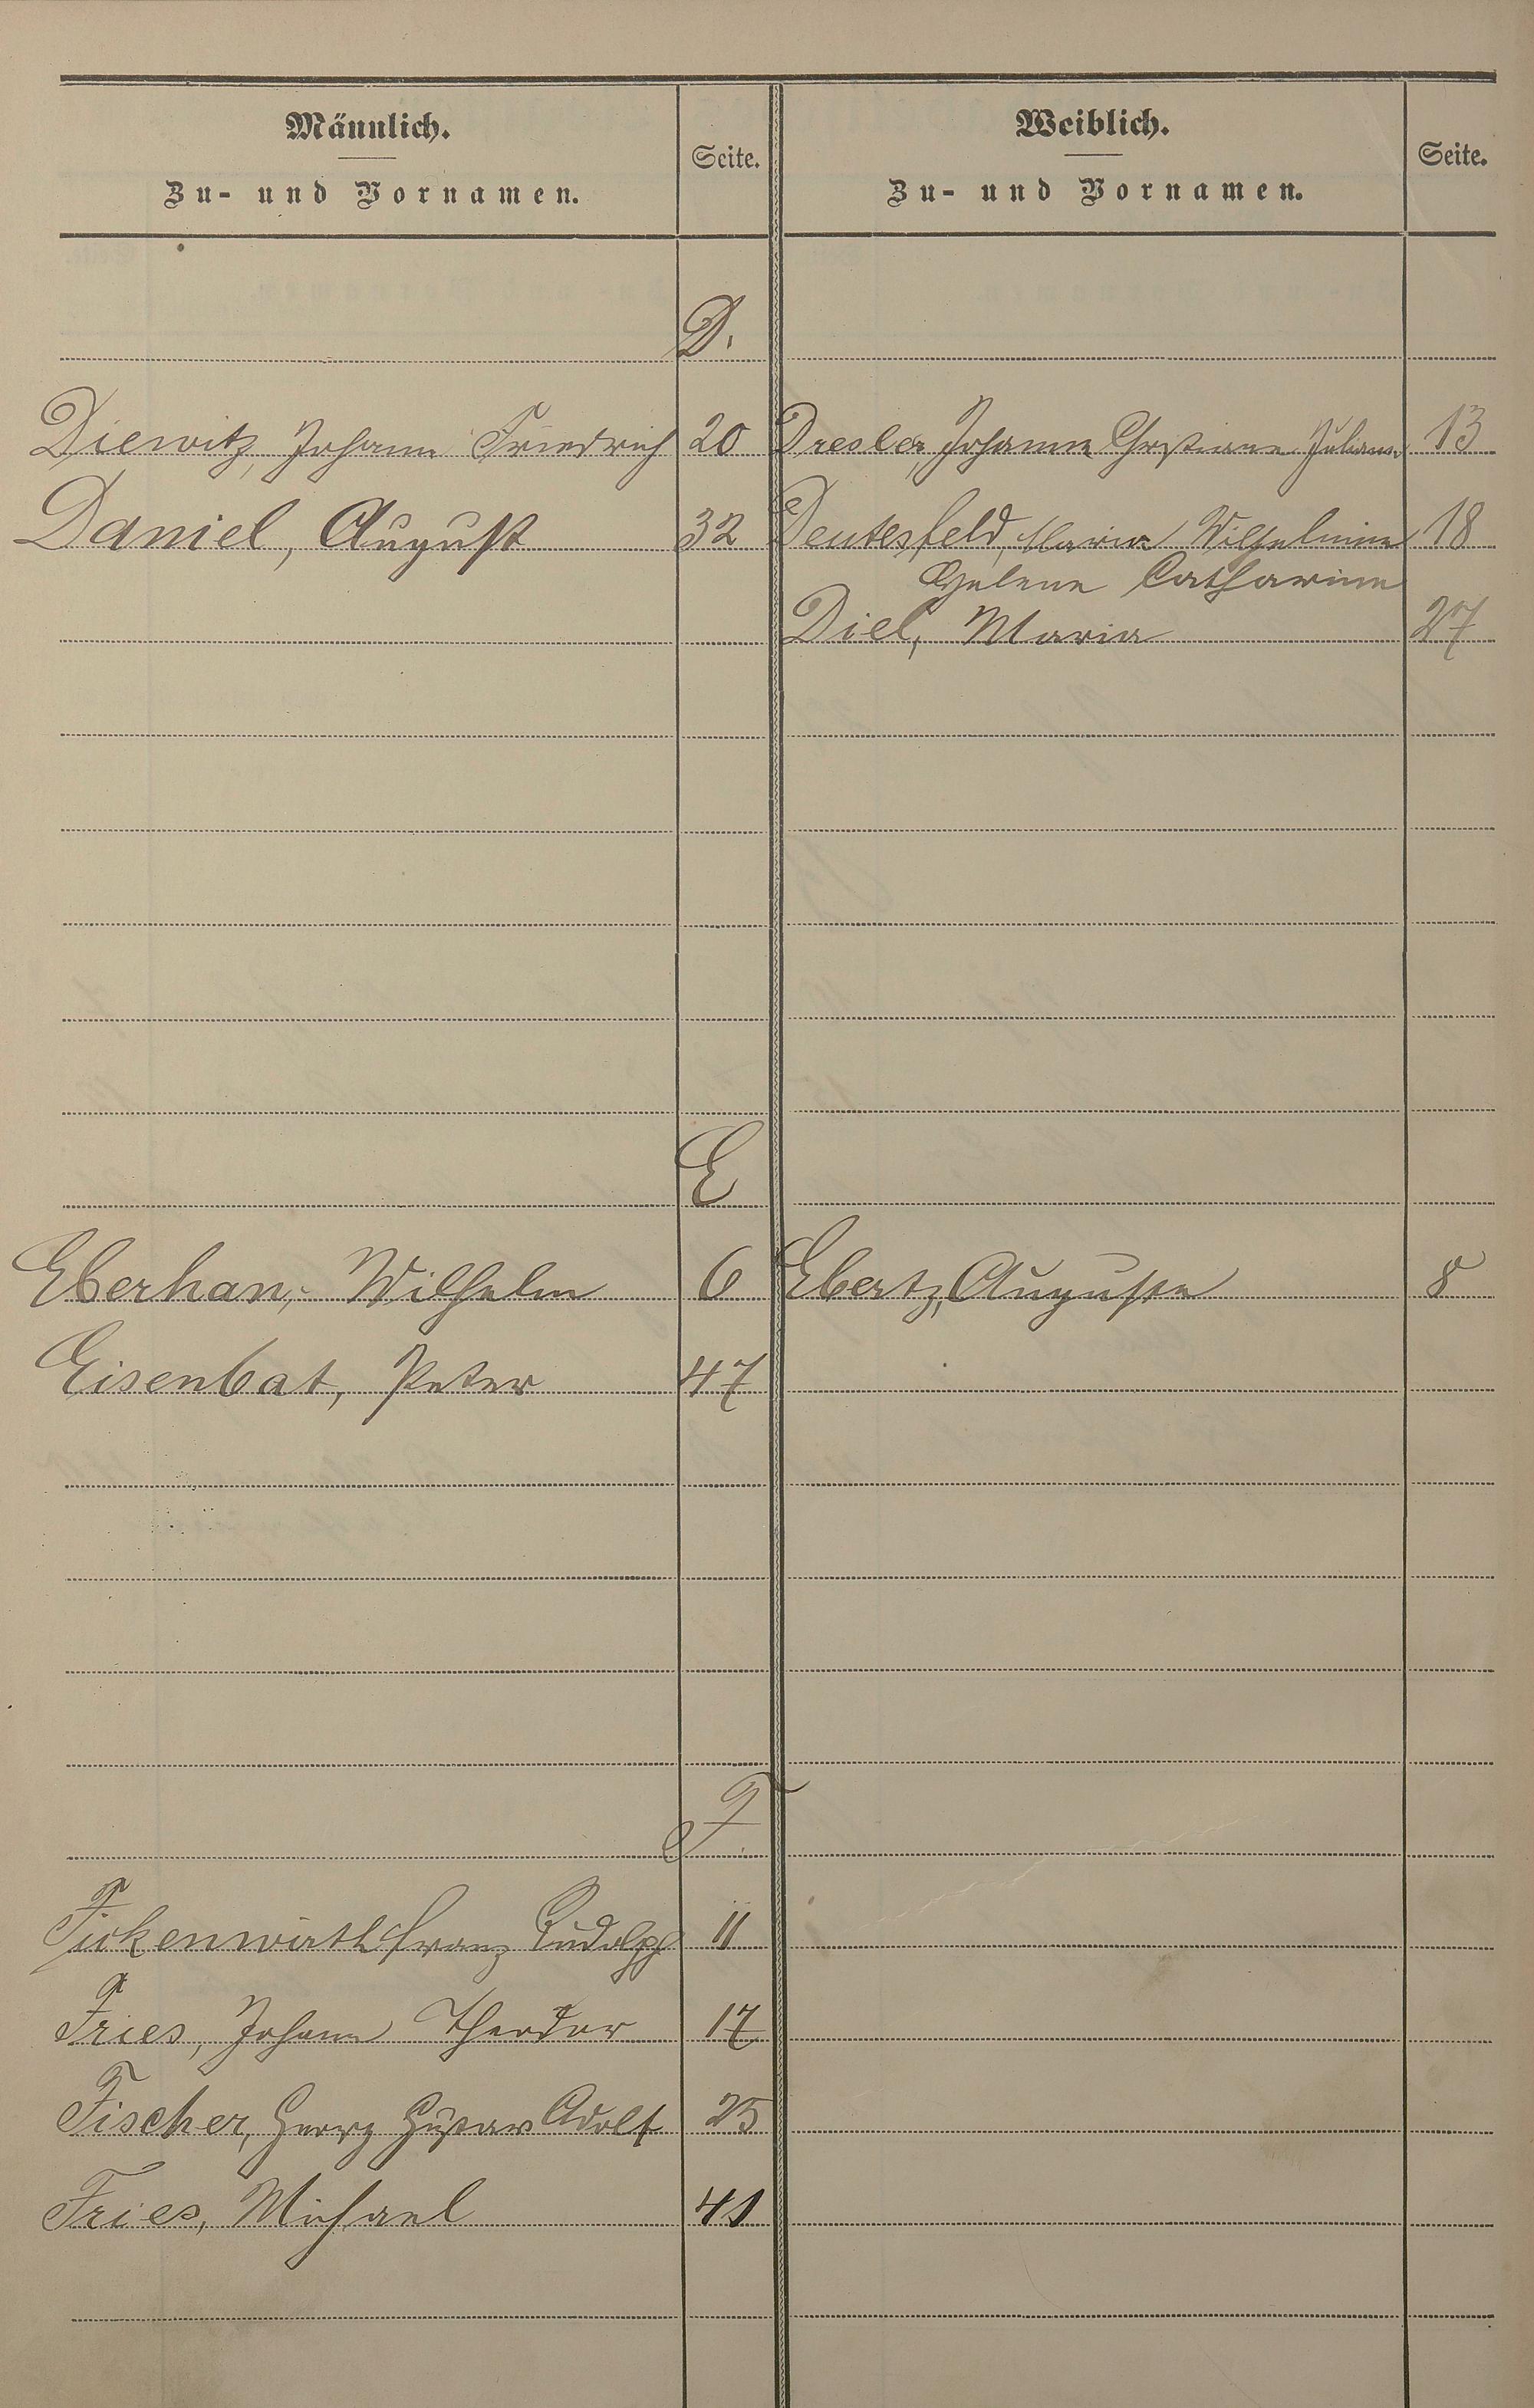 Männlich.
Zu- und Vornamen.
Seite.
Weiblich.
Zu- und Vornamen.
Seite.
D.
Diewitz, Johann Friedrich 20 Dresler, Johanne Christiane Juliane 13
Daniel, August 32 Deutesfeld, Maria Wilhelmine 18
Helene Catharine
Diel, Maria 27
E
Eberhan, Wilhelm 6 Ebertz, Auguste 8
Eisenbat, Peter 47
F.
Fickenwirth Franz Rudolph 11
Fries, Johann Theodor 17
Fischer, Georg Gustav Adolf 25
Fries, Michael 41